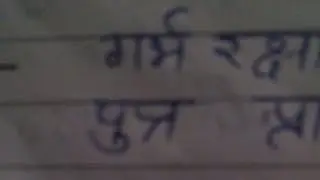 गर्भ रक्षा
पुत्र प्रा